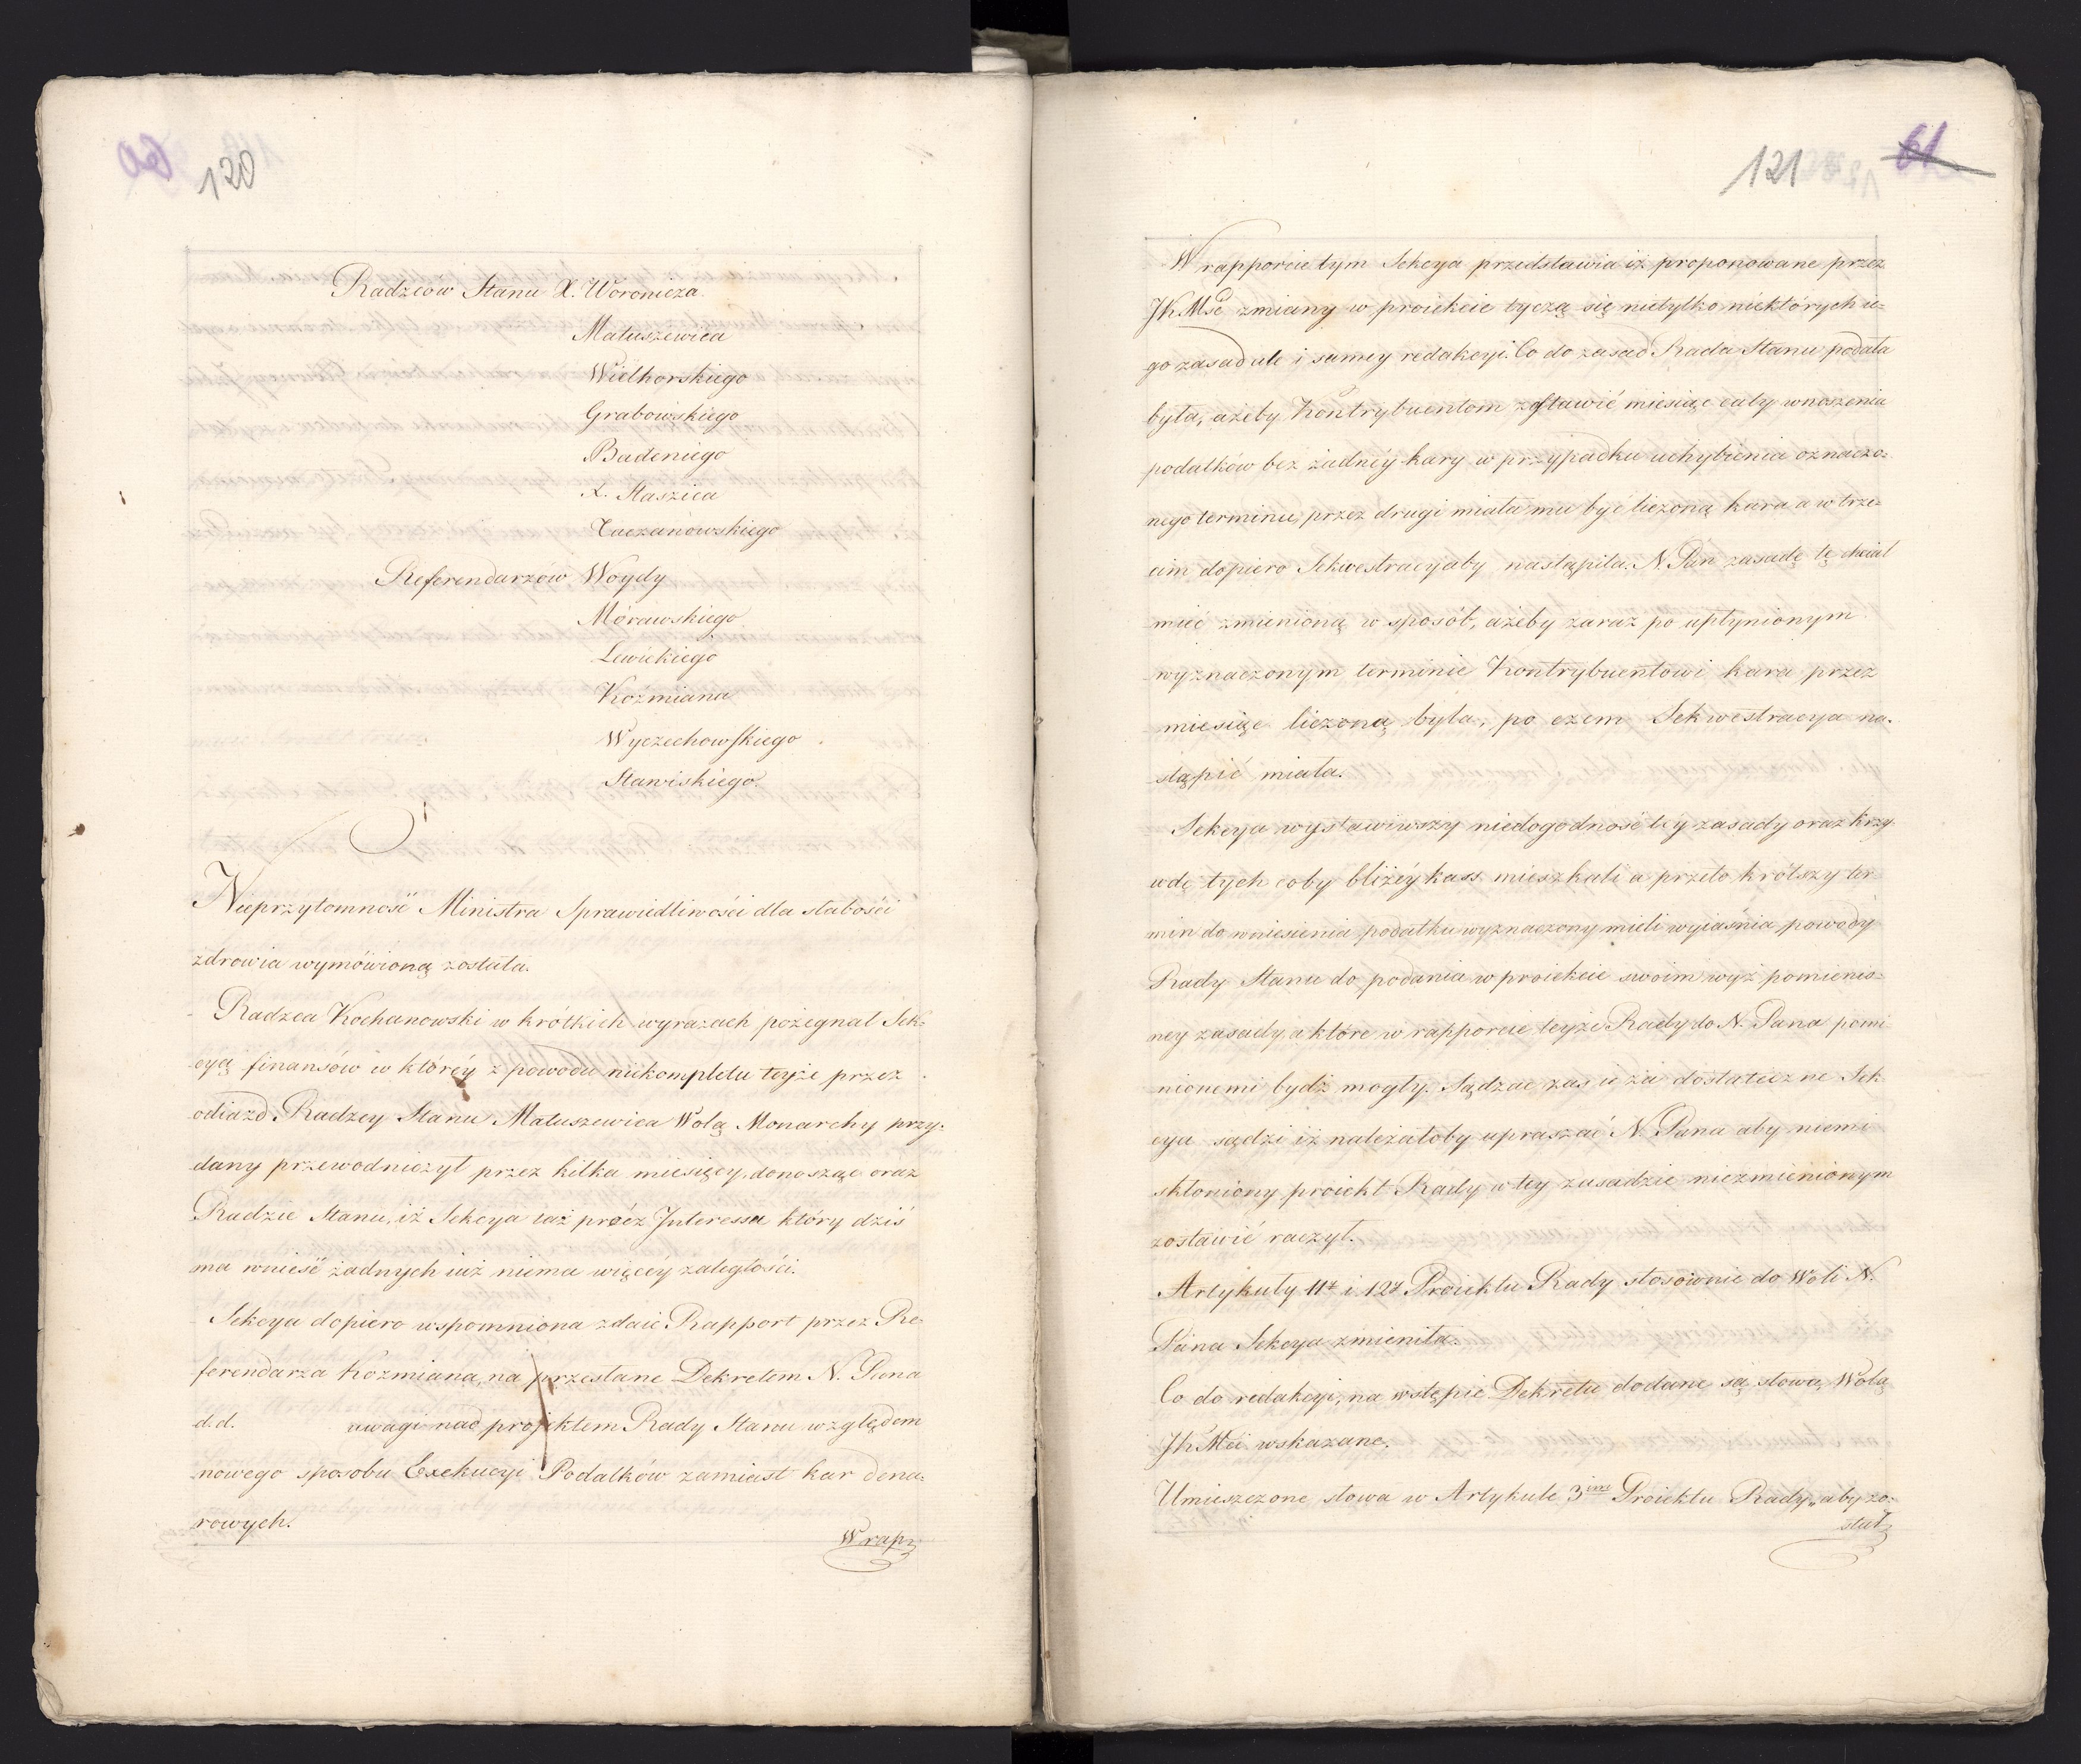 120
Radzców Stanu X. Woronicza
Matuszewica
Wielhorskiego
Grabowskiego
Badeniego
X. Staszica
Zaczanowskiego
Referendarzów Woydy
Morawskiego
Lewickiego
Koźmiana
Wyczechowskiego
Stawiskiego.
Nieprzytomność Ministra Sprawiedliwości dla słabości
zdrowia wymówioną została.
Radzca Kochanowski w krótkich wyrazach pożegnał Sek-
cyą finansów w któréy z powodu niekompletu teyże przez
odiazd Radzcy Stanu Matuszewica Wolą Monarchy przy-
dany przewodniczył przez kilka miesięcy, donosząc oraz
Radzie Stanu, iż Sekcya taż prócz Interessu który dziś
ma wnieść żadnych iuż niema więcéy zaległości.
Sekcya dopiero wspomniona zdaie Rapport przez Re-
ferendarza Koźmiana, na przesłane Dekretem N. Pana
d. d. uwagi nad projektem Rady Stanu względem
nowego sposobu Exekucyi Podatków zamiast kar dena-
rowych.
W rap:
121
61
W rapporcie tym Sekcya przedstawia iż proponowane przez
JKMść zmiany w proiekcie tyczą się nietylko niektórych ie-
go zasad ale i samey redakcyi. Co do zasad Rada Stanu podała
była, ażeby Kontrybuentom zostawić miesiąc cały wnoszenia
podatków bez żadnéy kary w przypadku uchybienia oznaczo-
nego terminu, przez drugi miała mu być liczoną kara a w trze-
cim dopiero Sekwestracyaby nastąpiła. N. Pan zasadę tę chciał
mieć zmienioną w sposób, ażeby zaraz po upłynionym
wyznaczonym terminie Kontrybuentowi kara przez
miesiąc liczoną była, po czem Sekwestracya na-
stąpić miała.
Sekcya wystawiwszy niedogodność tey zasady oraz krzy-
wdę tych coby bliżéy kass mieszkali a przeto krótszy ter-
min do wniesienia podatku wyznaczony mieli wyiaśnia powody
Rady Stanu do podania w proiekcie swoim wyż pomienio-
ney zasady, a które w rapporcie teyże Rady do N. Pana pomi-
nionemi bydź mogły. Sądząc zaś ie za dostateczne Sek
cya sądzi iż należałoby upraszać N. Pana aby niemi
skłoniony proiekt Rady w tey zasadzie niezmienionym
zostawić raczył.
Artykuły 11ty i 12ty Proiektu Rady stosownie do Woli N.
Pana Sekcya zmieniła.
Co do redakcyi, na wstępie Dekretu dodane są słowa, Wolą
JKMci wskazane.
Umieszczone słowa w Artykule 3cim Proiektu Rady „aby zo-
stał